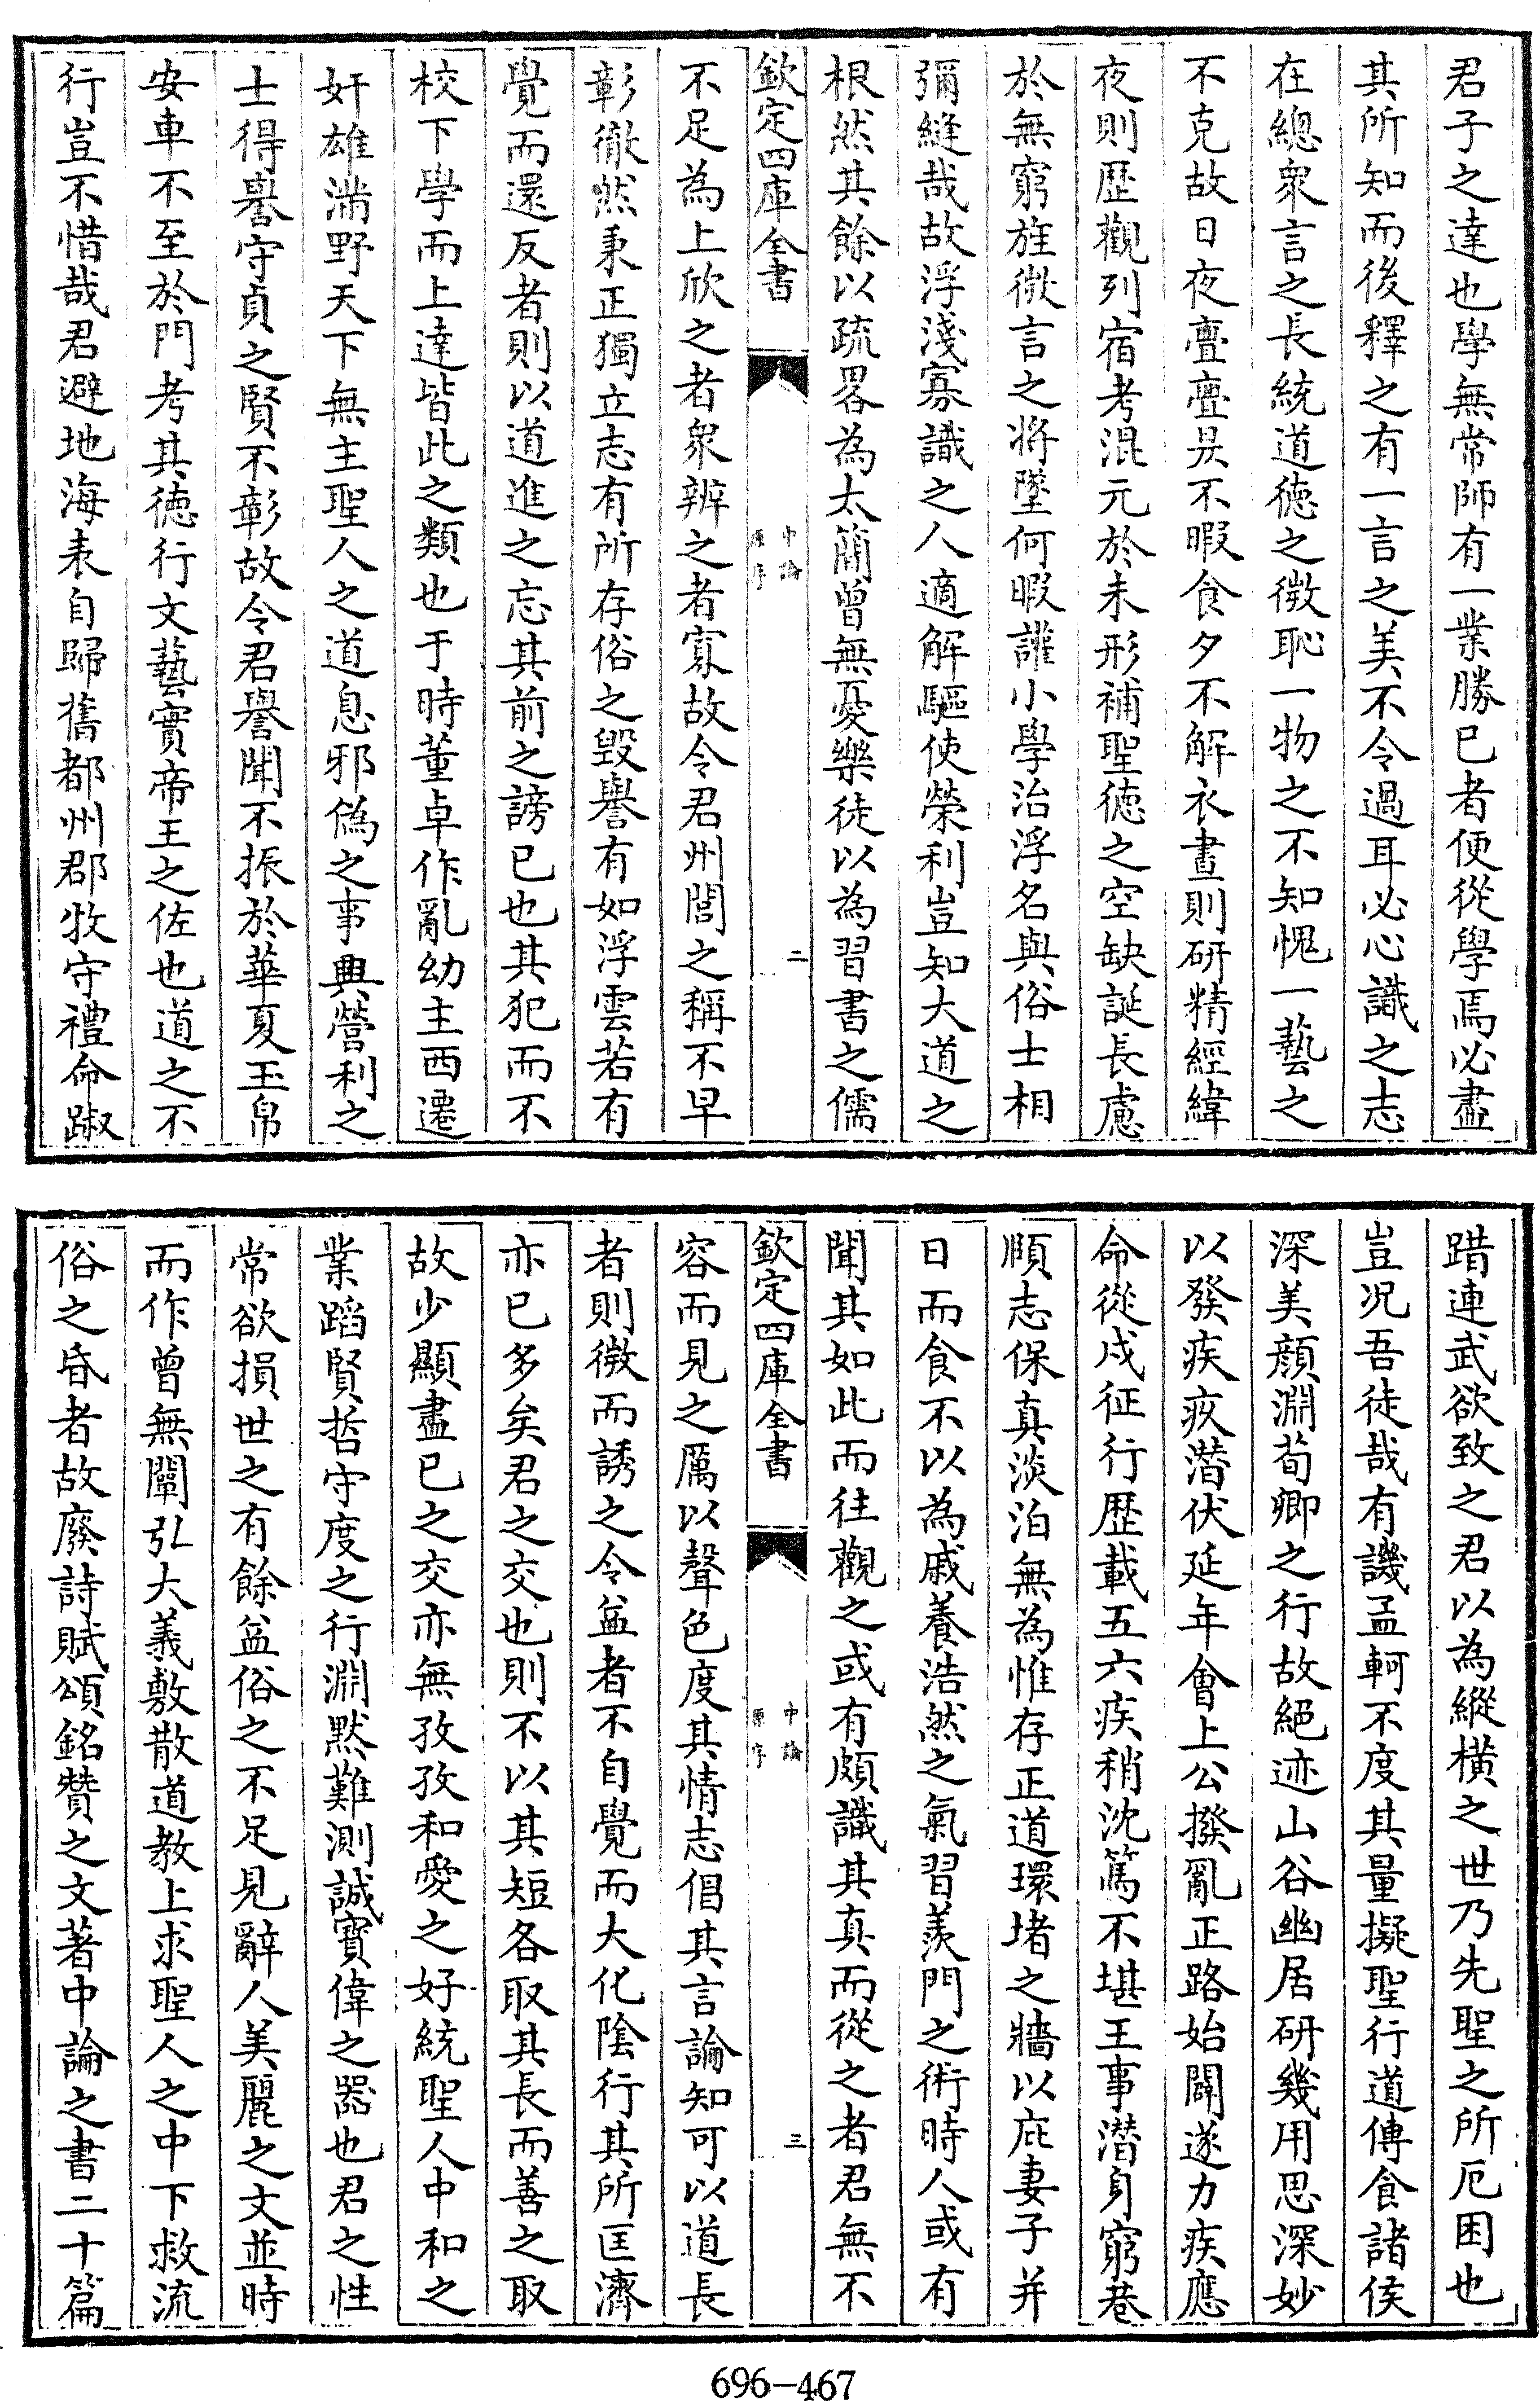 君子之達也學無常師有一業勝已者便從學焉必盡
其所知而後釋之有一言之美不令過耳必心識之志
在總衆言之長統道徳之微恥一物之不知愧一藝之
不克故日夜亹亹昃不暇食夕不解衣晝則研精經緯
夜則歴觀列宿考混元於未形補聖徳之空缺誕長慮
於無窮旌微言之將墜何暇讙小學治浮名與俗士相
彌縫哉故浮淺寡識之人適解驅使榮利豈知大道之
根然其餘以疏畧為太簡曾無憂樂徒以為習書之儒
欽定四庫全書
中論
原序
二
不足為上欣之者衆辨之者寡故令君州閭之稱不早
彰徹然秉正獨立志有所存俗之毀譽有如浮雲若有
覺而還反者則以道進之忘其前之謗已也其犯而不
校下學而上達皆此之類也于時董卓作亂幼主西遷
奸雄滿野天下無主聖人之道息邪偽之事興營利之
士得譽守貞之賢不彰故令君譽聞不振於華夏玉帛
安車不至於門考其徳行文藝實帝王之佐也道之不
行豈不惜哉君避地海表自歸舊都州郡牧守禮命踧
踖連武欲致之君以為縱横之世乃先聖之所厄困也
豈况吾徒哉有譏孟軻不度其量擬聖行道傳食諸侯
深美顔淵荀卿之行故絕迹山谷幽居研幾用思深妙
以發疾疢潜伏延年會上公撥亂正路始闢遂力疾應
命從戍征行歴載五六疾稍沈篤不堪王事潜身窮巷
頤志保真淡泊無為惟存正道環堵之牆以庇妻子并
日而食不以為戚養浩然之氣習羡門之術時人或有
聞其如此而往觀之或有頗識其真而從之者君無不
欽定四庫全書
中論
原序
三
容而見之厲以聲色度其情志倡其言論知可以道長
者則微而誘之令益者不自覺而大化陰行其所匡濟
亦已多矣君之交也則不以其短各取其長而善之取
故少顯盡已之交亦無孜孜和愛之好統聖人中和之
業蹈賢哲守度之行淵默難測誠寳偉之器也君之性
常欲損世之有餘益俗之不足見辭人美麗之文並時
而作曾無闡弘大義敷散道教上求聖人之中下救流
俗之昏者故廢詩賦頌銘贊之文著中論之書二十篇
696-467